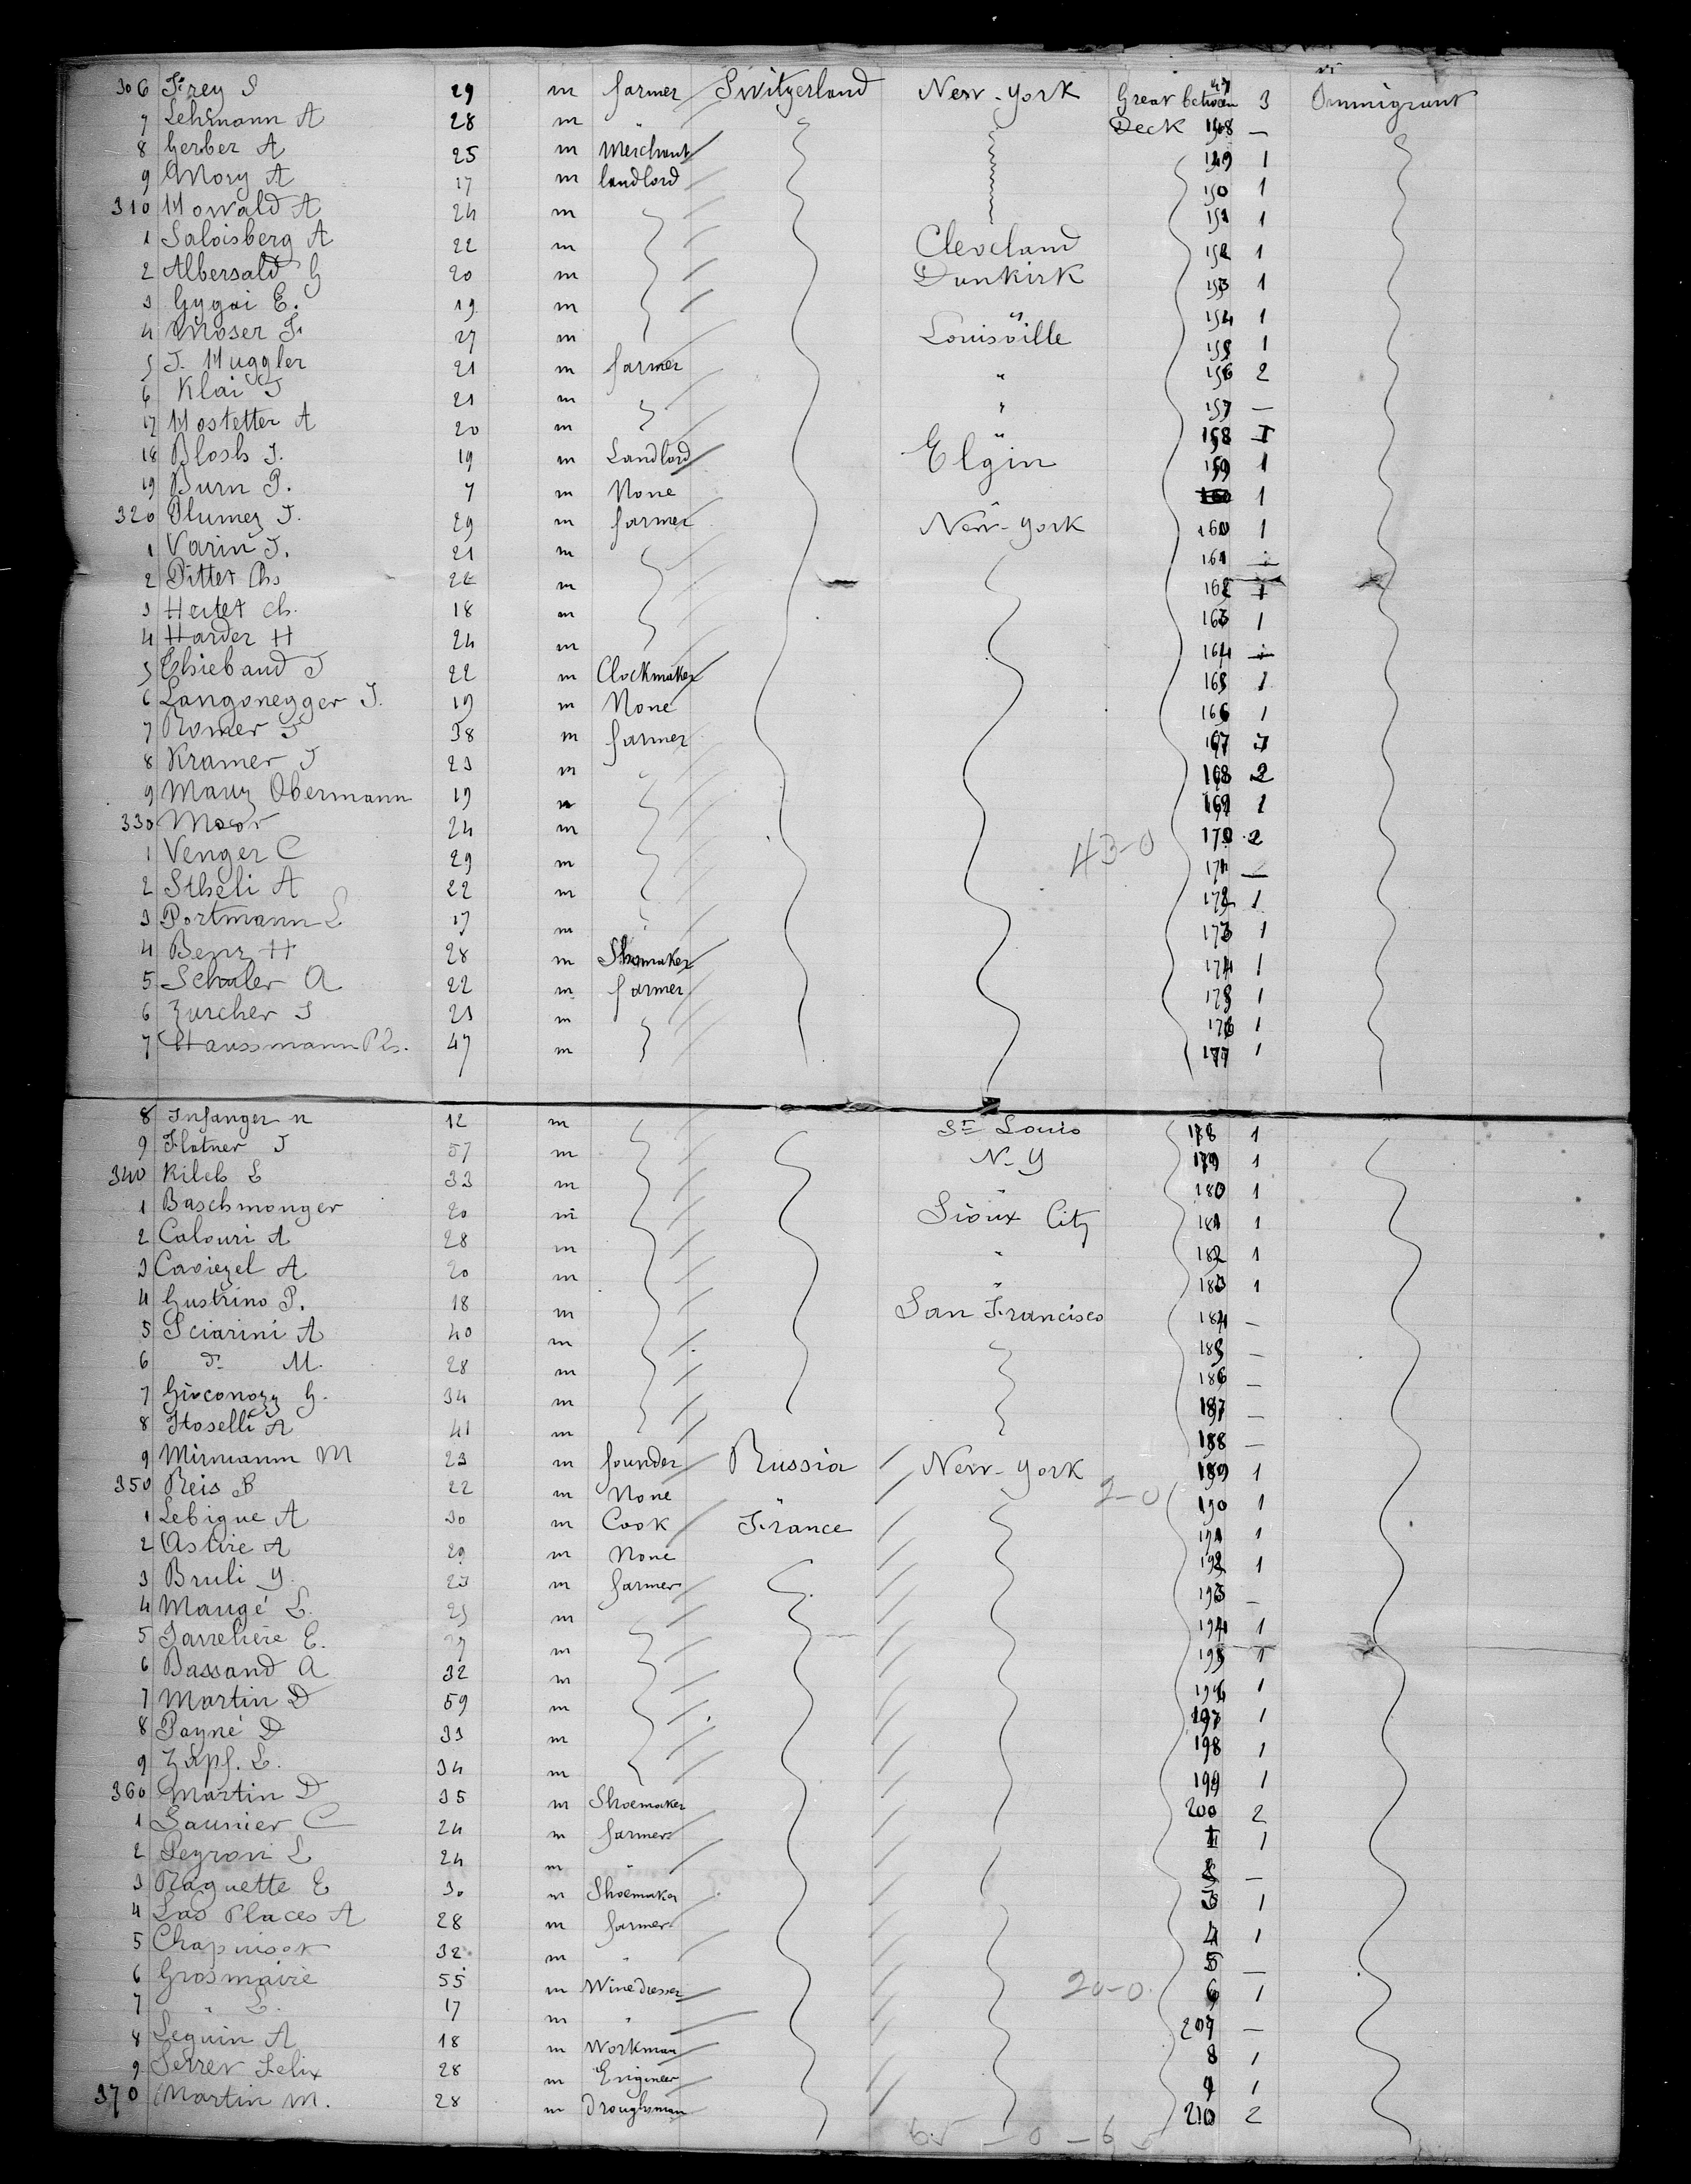 306 Frey S 29 m farmer Switzerland New-York Great between 47 3 Ommigrant
7 Lehmann A 28 m " Deck 148 —
8 Gerber A 25 m Merchant 149 1
9 Mory A 17 m landlord 150 1
310 Howald A 24 m 151 1
1 Saloisberg A 22 m Cleveland 152 1
2 Albersald G 20 m Dunkirk 153 1
3 Gygai E. 19 m " 154 1
4 Moser F. 27 m Louisville 155 1
5 J. Huggler 21 m farmer " 156 2
6 Klai J 21 m " 157 —
17 Hostetter A 20 m " 158 1
18 Blosh J. 19 m Landlord Elgin 159 1
19 Burn P. 7 m None " 1
320 Plumez J. 29 m farmer New-York 160 1
1 Varin J. 21 m 161
2 Dittet Chs 22 m 162 1
3 Hertet Ch. 18 m 163 1
4 Harder H 24 m 164
5 Thiebaud J 22 m Clockmaker 165 1
6 Langonegger J. 19 m None 166 1
7 Romer J 38 m farmer 167
8 Kramer J 23 m 168 2
9 Mauz Obermann 19 m 169 1
330 Moor 24 m 170 2
1 Venger C 29 m 43-0 171 —
2 Stheli A 22 m 172 1
3 Portmann L 17 m 173 1
4 Benz H 28 m Shomaker 174 1
5 Schaler A 22 m farmer 175 1
6 Zurcher J 23 m 176 1
7 Haussmann Ph. 47 m 177 1
8 Infanger n 12 m St Louis 178 1
9 Flatner J 57 m N-Y 179 1
340 Kilch L 33 m " 180 1
1 Baschmonger 20 m Sioux City 181 1
2 Calouri A 28 m " 182 1
3 Caviezel A 20 m " 183 1
4 Gustrino P. 18 m San Francisco 184 —
5 Sciarini A 40 m 185 —
6 do M. 28 m 186 —
7 Gioconozy G. 34 m 187 —
8 Itoselli A 41 m 188 —
9 Mirmanm M 23 m founder Russia New-York 189 1
350 Reis B 22 m None " 2-0 190 1
1 Lebigue A 30 m Cook France 191 1
2 Astire A 29 m None 192 1
3 Bruli Y. 23 m farmer 193 —
4 Maugé L. 25 m 194 1
5 Jarreliere E. 27 m 195 1
6 Bassand A 32 m 196 1
7 Martin D 59 m 197 1
8 Payné D 33 m 198 1
9 Zapf. L. 34 m 199 1
360 Martin D 35 m Shoemaker 200 2
1 Saunier C 24 m farmer 1 1
2 Peyron L 24 m " 2 —
3 Raguette E 30 m Shoemaker 3 1
4 Las Places A 28 m farmer 4 1
5 Chapuisot 32 m " 5 —
6 Grosmaire 55 m Winedresser 20-0 6 1
7 " L. 17 m " 207 —
8 Seguin A 18 m Workman 8 1
9 Serrer Felix 28 m Engineer 9 1
370 Martin M. 28 m Droughsman 210 2
65 — 0 — 6